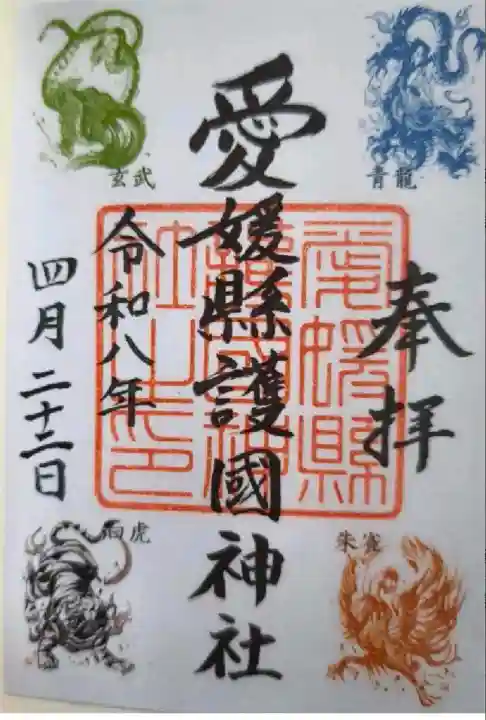 青龍
奉拝
朱雀
愛媛縣護國神社
愛媛縣
護國神
社之印
令和八年
四月二十二日
玄武
白虎